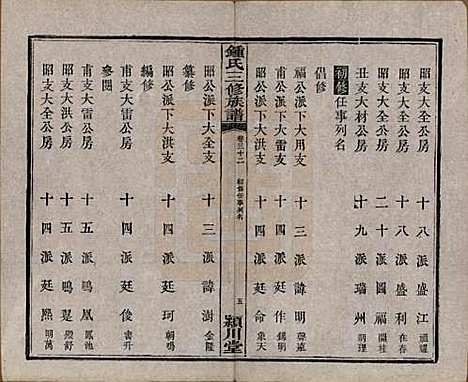 昭支大全公房 十八派盛江
昭支大全公房 十八派盛利
昭支大全公房 二十派國福 開桂
丑支大材公房 十九派瑞州
初修任事列名
倡修
福公派下大用支 十三派諱明
甫公派下大雷支 十四派廷作 錫明
昭公派下大全支 十四派廷命 象天
鍾氏三修族譜
卷三十二
初修任事列名
五
潁川堂
昭公派下大全支 十三派諱澍 金隆
昭公派下大洪支 十四派廷珂 朝鳴
纂修
昭支大全公房 十四派廷俊 書升
編修
甫支大雷公房 十五派鳴鳳 鳳池
甫支大雷公房 十五派鳴疊 殿舒
昭支大全公房 十四派廷熙 明萬
參閱